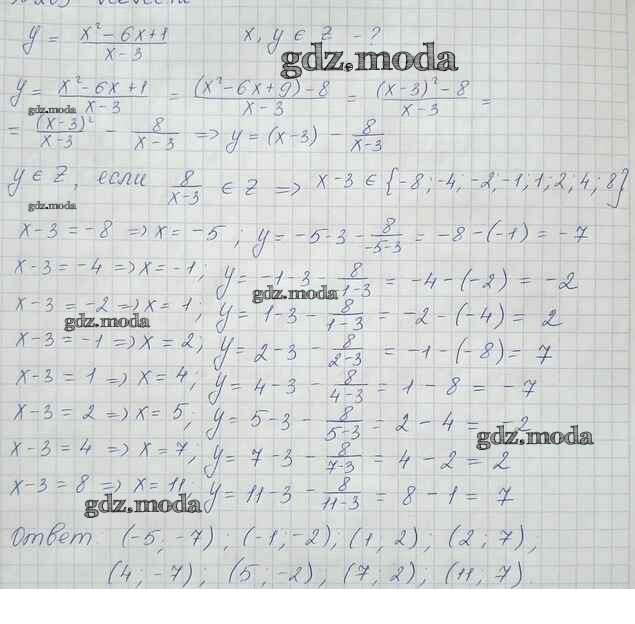 y = (x² - 6x + 1)/(x - 3)   x, y ∈ Z - ?
gdz.moda
y = (x² - 6x + 1)/(x - 3) = ((x² - 6x + 9) - 8)/(x - 3) = ((x - 3)² - 8)/(x - 3) =
gdz.moda
= (x - 3)²/(x - 3) - 8/(x - 3) => y = (x - 3) - 8/(x - 3)
y ∈ Z, если 8/(x - 3) ∈ Z => x - 3 ∈ {-8; -4; -2; -1; 1; 2; 4; 8}
gdz.moda
x - 3 = -8 => x = -5; y = -5 - 3 - 8/(-5 - 3) = -8 - (-1) = -7
x - 3 = -4 => x = -1; y = -1 - 3 - 8/(1 - 3) = -4 - (-2) = -2
gdz.moda
x - 3 = -2 => x = 1; y = 1 - 3 - 8/(1 - 3) = -2 - (-4) = 2
gdz.moda
x - 3 = -1 => x = 2; y = 2 - 3 - 8/(2 - 3) = -1 - (-8) = 7
x - 3 = 1 => x = 4; y = 4 - 3 - 8/(4 - 3) = 1 - 8 = -7
x - 3 = 2 => x = 5; y = 5 - 3 - 8/(5 - 3) = 2 - 4 = -2
gdz.moda
x - 3 = 4 => x = 7; y = 7 - 3 - 8/(7 - 3) = 4 - 2 = 2
x - 3 = 8 => x = 11 y = 11 - 3 - 8/(11 - 3) = 8 - 1 = 7
gdz.moda
Ответ: (-5; -7); (-1; -2); (1; 2); (2; 7);
(4; -7); (5; -2); (7; 2); (11; 7).